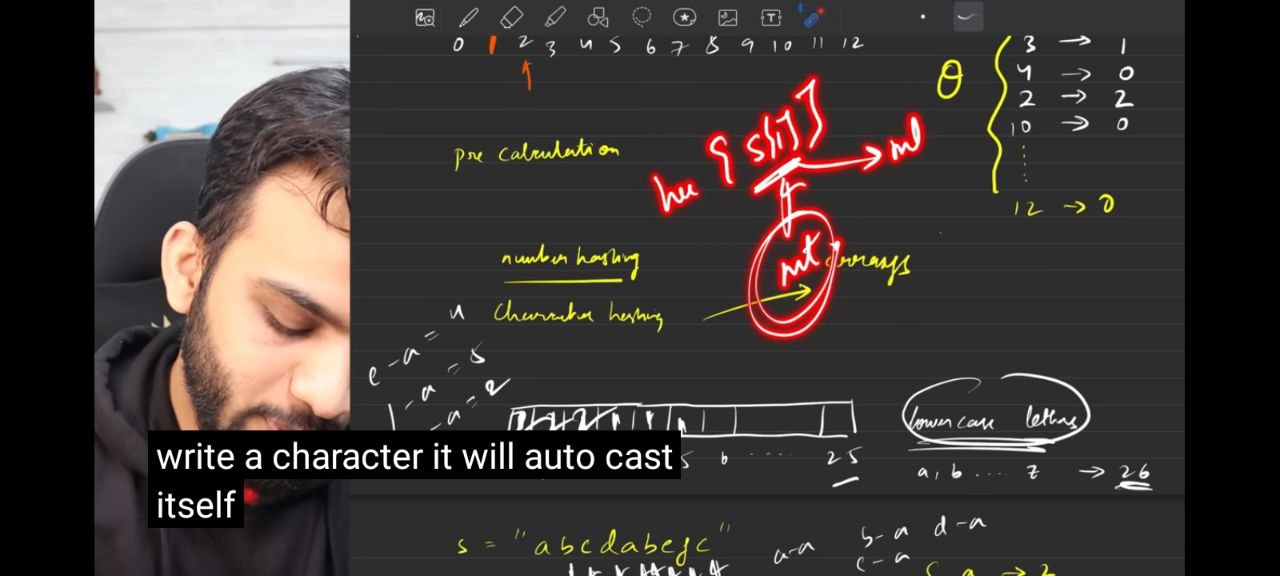 0 1 2 3 4 5 6 7 8 9 10 11 12
3 → 1
4 → 0
2 → 2
10 → 0
12 → 0
pre calculation
s[i]
number hashing
int
arrays
character hashing
e-a = 4
-a = 5
-a = 2
lowercase letters
5 6 ..... 25
a, b .... z → 26
write a character it will auto cast
itself
s = "abcdabefc"
a-a
b-a d-a
c-a